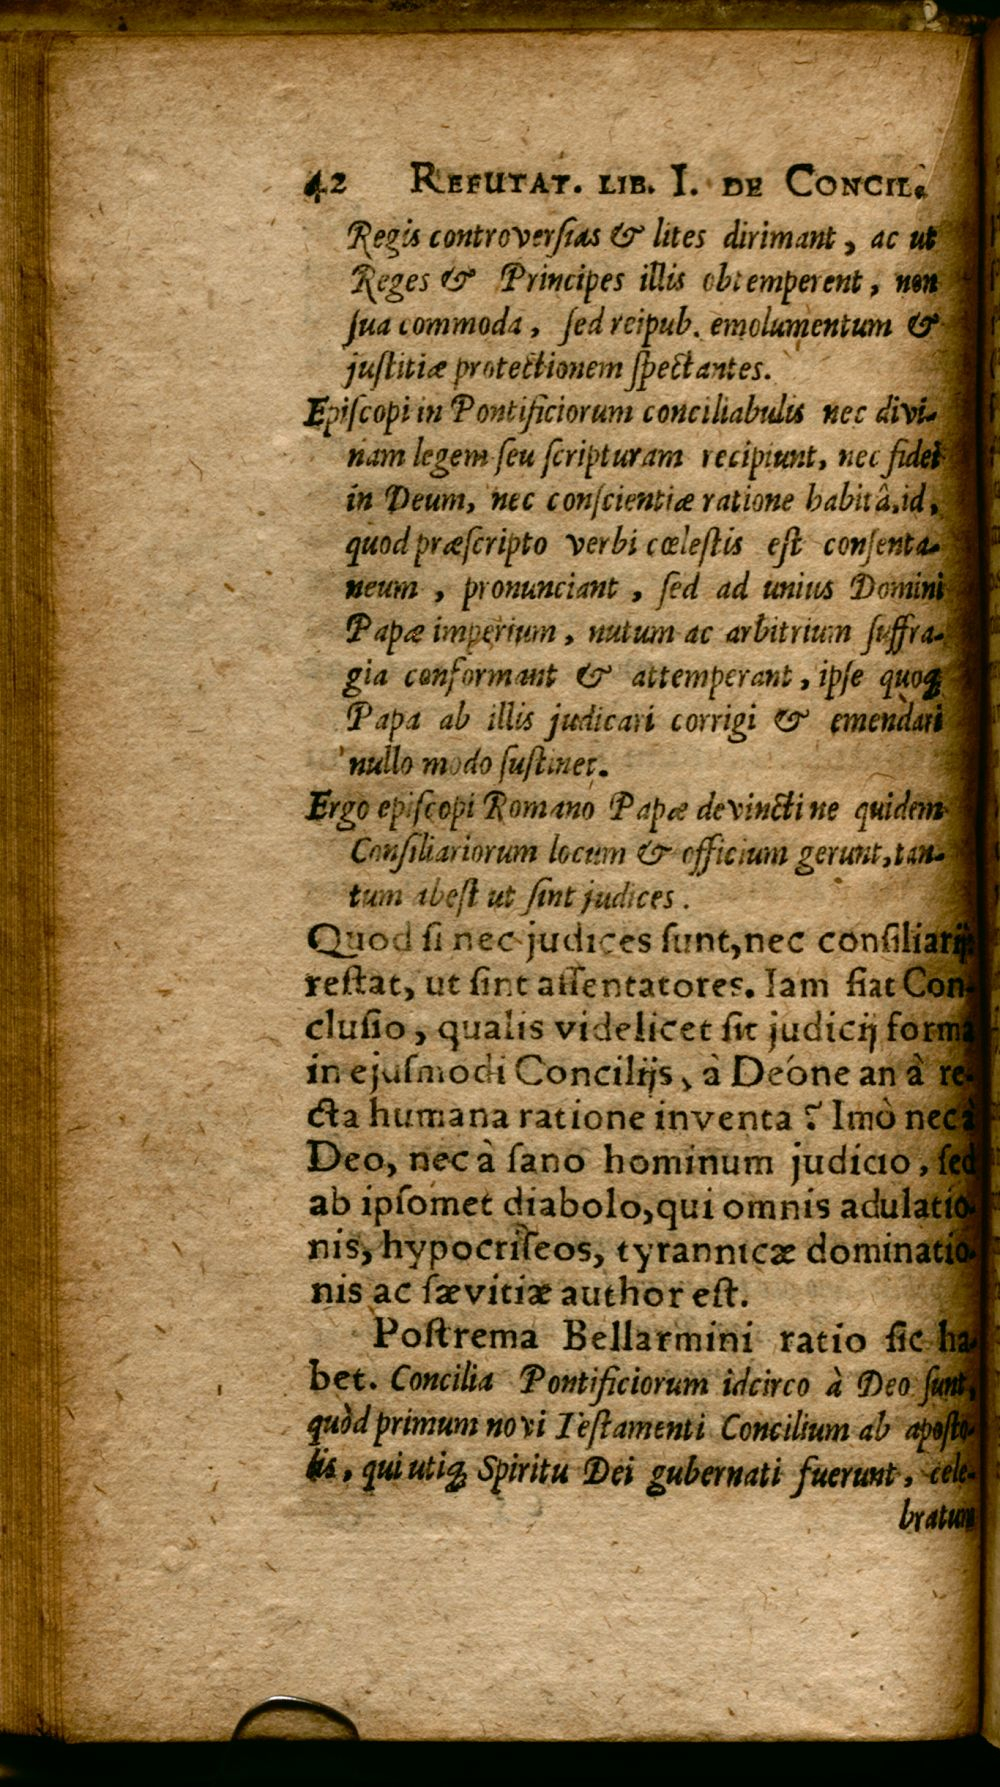 42 REFUTAT. LIB. I. DE CONCIL.
Regis controverſias & lites dirimant, ac ut
Reges & Principes illis obtemperent, non
ſua commoda, ſed reipub. emolumentum &
juſtitiæ protectionem ſpectantes.
Epiſcopi in Pontificiorum conciliabulis nec divi-
nam legem ſeu ſcripturam recipiunt, nec fidei
in Deum, nec conſcientiæ ratione habitâ, id,
quod præſcripto verbi cœleſtis eſt conſenta-
neum, pronunciant, ſed ad unius Domini
Papæ imperium, nutum ac arbitrium ſuffra-
gia conformant & attemperant, ipſe quoq́
Papa ab illis judicari corrigi & emendari
nullo modo ſuſtinet.
Ergo epiſcopi Romano Papæ devincti ne quidem
Conſiliariorum locum & officium gerunt, tan-
tum abeſt ut ſint judices.
Quod ſi nec judices ſunt, nec conſiliarij:
reſtat, ut ſint aſſentatores. Iam fiat Con-
cluſio, qualis videlicet ſit judicij forma
in ejuſmodi Concilijs, à Deóne an à re-
cta humana ratione inventa? Imò nec à
Deo, nec à ſano hominum judicio, ſed
ab ipſomet diabolo, qui omnis adulatio-
nis, hypocriſeos, tyrannicæ dominatio-
nis ac ſævitiæ author eſt.
Poſtrema Bellarmini ratio ſic ha-
bet. Concilia Pontificiorum idcirco à Deo ſunt,
quòd primum novi Teſtamenti Concilium ab apoſto-
lis, qui utiq́ Spiritu Dei gubernati fuerunt, cele-
bratum